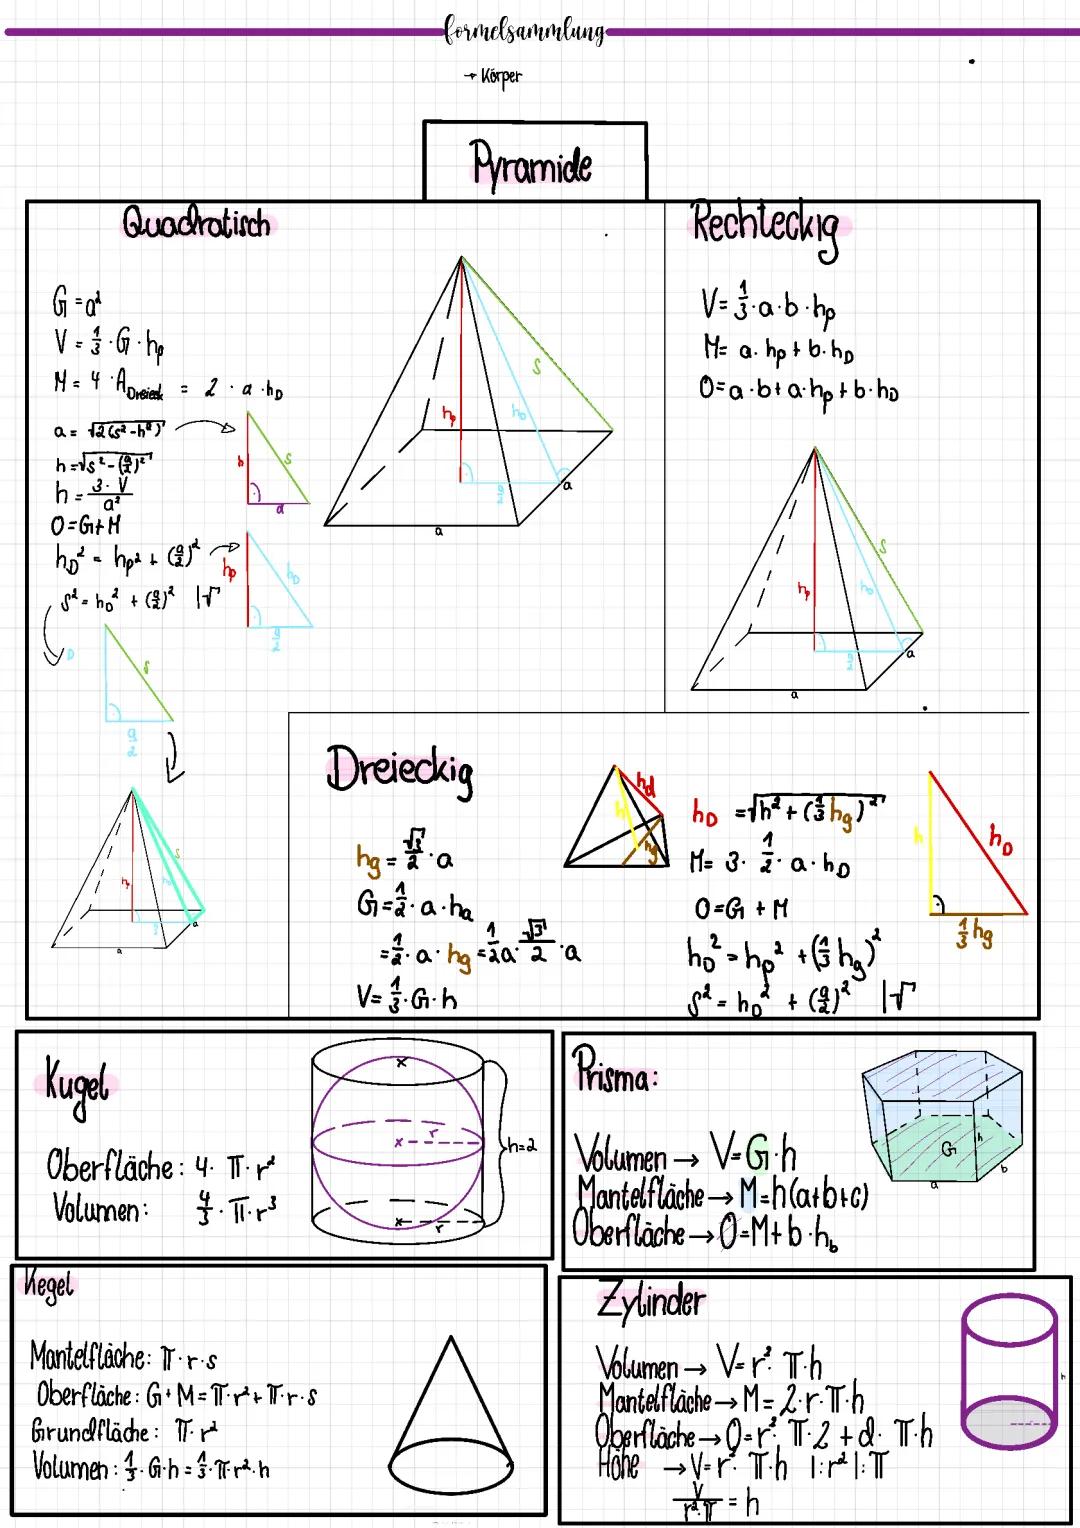 formelsammlung
→ Körper
Pyramide
Quadratisch
G = a²
V = 1/3 · G · hp
M = 4 · A Dreieck = 2 · a · hD
a = √2(s²-h²)
h = √s² - (a/2)²
h = 3 · V / a²
O = G + M
hD² = hp² + (a/2)²
s² = hD² + (a/2)² |√
h
s
a
hp
hD
a/2
D
s
a/2
hp
hD
s
a/2
a
a
s
a
a
Rechteckig
V = 1/3 · a · b · hp
M = a · hp + b · hD
O = a · b + a · hp + b · hD
s
hp
a/2
a
a
Dreieckig
hg = √3/2 · a
G = 1/2 · a · ha
= 1/2 · a · hg = 1/2 a · √3/2 · a
V = 1/3 · G · h
hd
h
hg
hD = √h² + (1/3 hg)²
M = 3 · 1/2 · a · hD
O = G + M
hD² = hp² + (1/3 hg)²
s² = hD² + (a/2)² |√
h
hD
1/3 hg
Kugel
Oberfläche: 4 · π · r²
Volumen: 4/3 · π · r³
x
x r
x r
h=2
Prisma:
Volumen → V = G · h
Mantelfläche → M = h(a+b+c)
Oberfläche → O = M + b · hb
G
h
a
b
Kegel
Mantelfläche: π · r · s
Oberfläche: G + M = π · r² + π · r · s
Grundfläche: π · r²
Volumen: 1/3 · G · h = 1/3 · π · r² · h
Zylinder
Volumen → V = r² · π · h
Mantelfläche → M = 2 · r · π · h
Oberfläche → O = r² · π · 2 + d · π · h
Höhe → V = r² · π · h |: r² |: π
V / r² · π = h
h
r